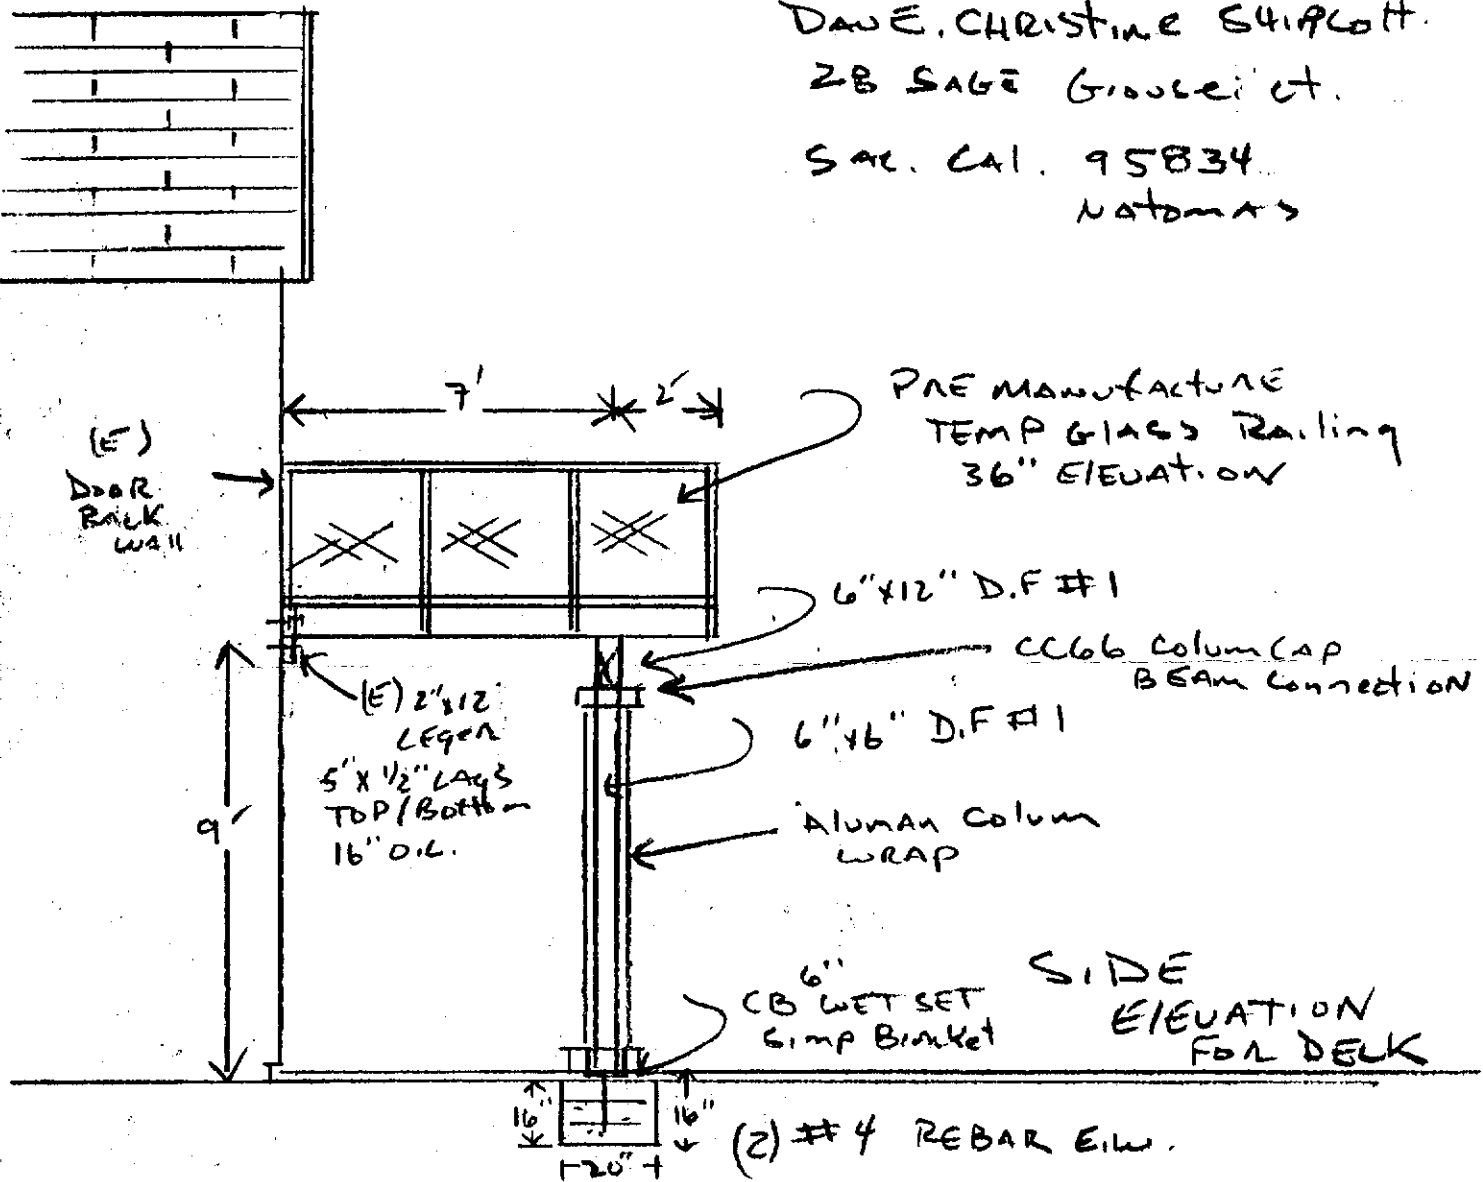 DAN E. CHRISTINE SHIPCOTT.
28 SAGE Ct.
SAC. CAL. 95834
NATOMAS
7' 2'
PRE MANUFACTURE
TEMP GLASS RAILING
36" ELEVATION
(E)
DOOR
BACK
WALL
6"X12" D.F #1
CC66 COLUM CAP
BEAM CONNECTION
(E) 2"x12"
LEGER
5" X 1/2" LAGS
TOP/BOTTOM
16" O.C.
6"x6" D.F #1
9'
ALUMAN COLUM
WRAP
6"
CB WET SET
SIMP BRAKET
SIDE
ELEVATION
FOR DECK
16" 16"
20"
(2) #4 REBAR E.W.